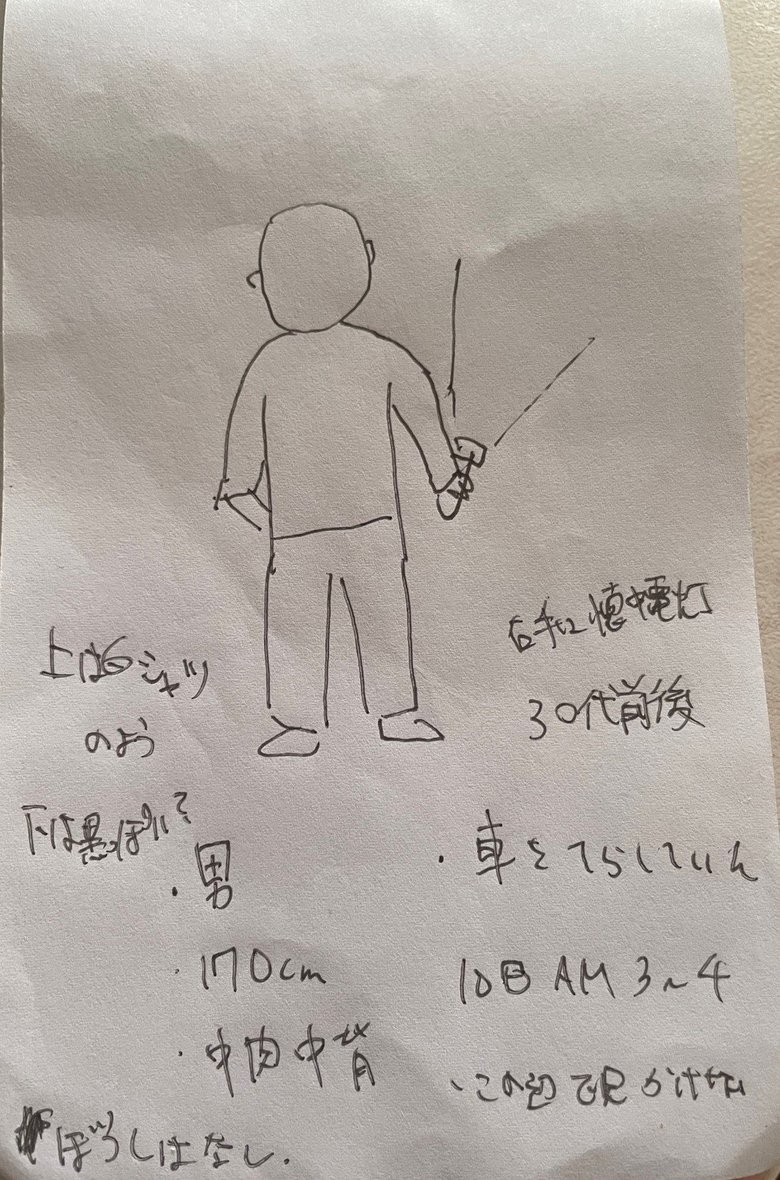 上は白シャツ
のよう
下は黒っぽい?
・男
・170cm
・中肉中背
ぼうしはなし.
右手に懐中電灯
30代前後
・車をてらしていた
10日 AM 3~4
・この辺で見かけない